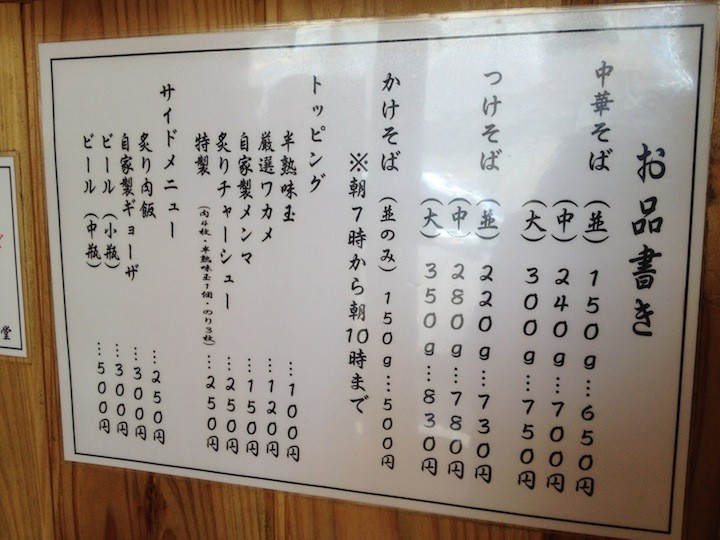 お品書き
中華そば (並) 150g…650円
(中) 240g…700円
(大) 300g…750円
つけそば (並) 220g…730円
(中) 280g…780円
(大) 350g…830円
かけそば (並のみ) 150g…500円
※朝7時から朝10時まで
トッピング
半熟味玉 …100円
厳選ワカメ …120円
自家製メンマ …150円
炙りチャーシュー …250円
特製 (肉4枚・半熟味玉1個・のり3枚) …250円
サイドメニュー
炙り肉飯 …250円
自家製ギョーザ …300円
ビール (小瓶) …300円
ビール (中瓶) …500円
堂